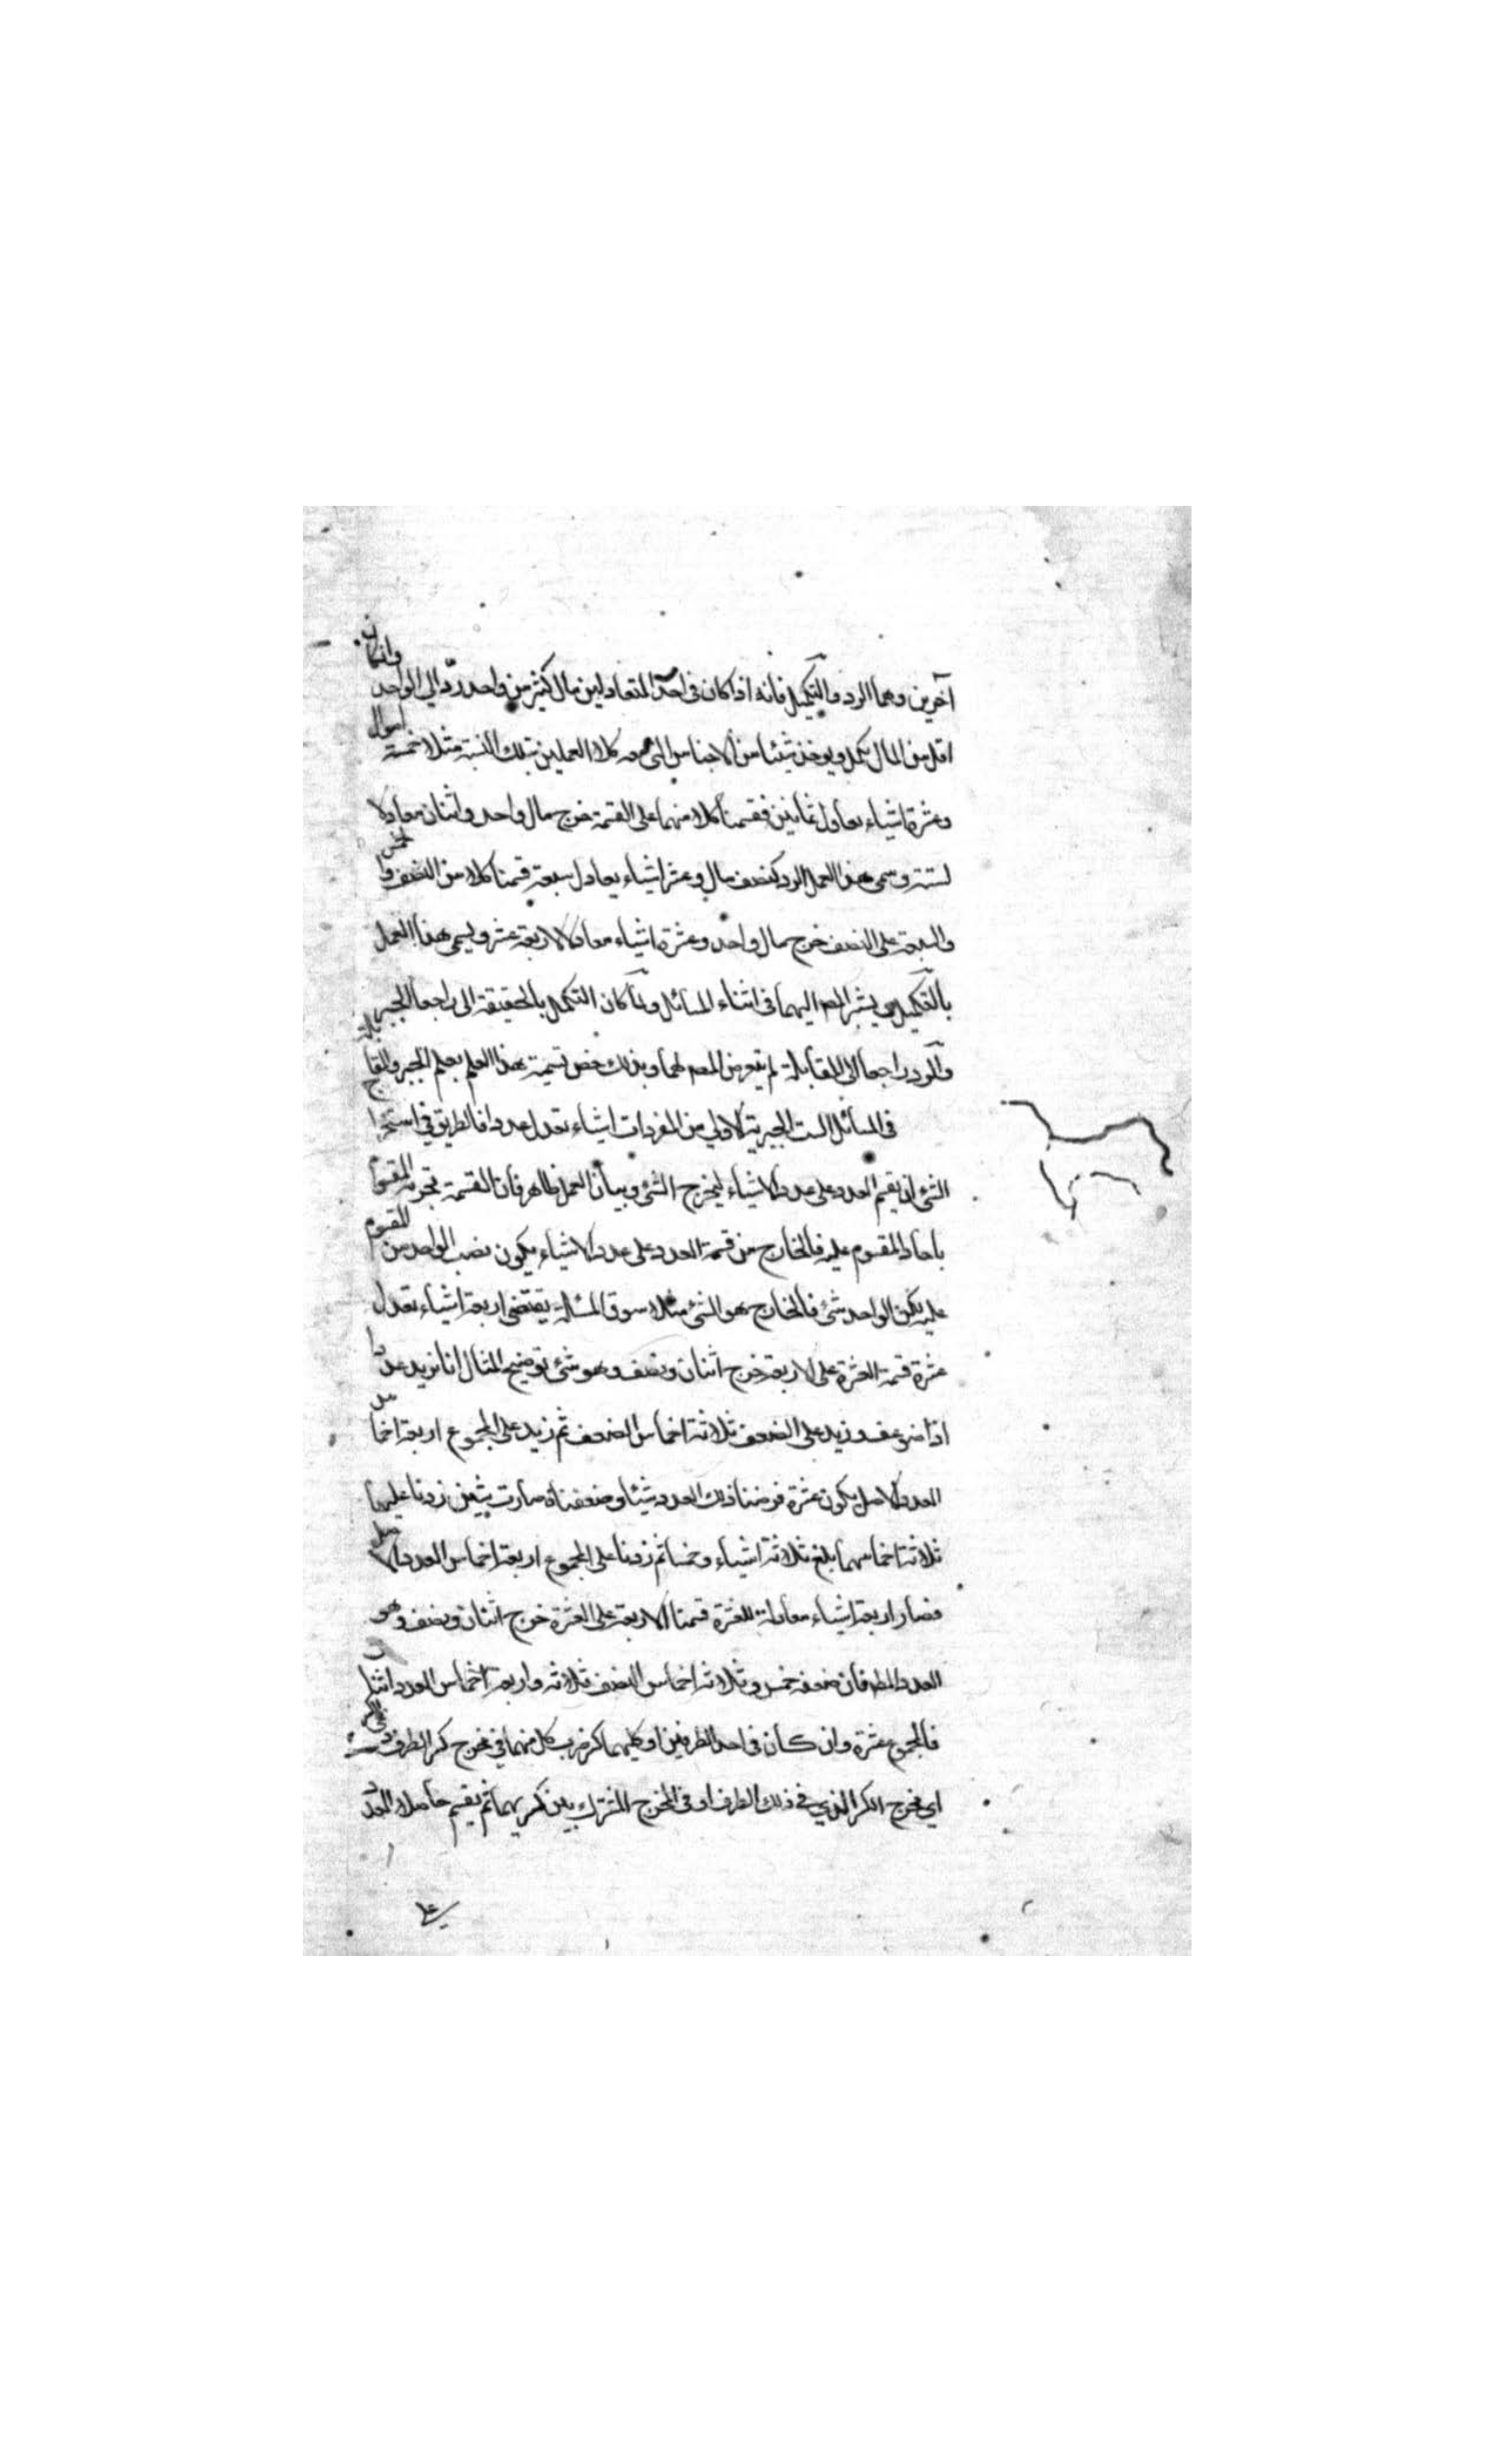 آخرين وهما الرد والتكميل فانه اذا كان فى احد المتعادلين مال كثير من واحد ردّ الى الواحد وانكان
اقل من المال يكمل ويوخذ شيئا من الاجناس التى معه كلا العملين بتلك النسبة مثلا خمسة اموال
وعشرة اشياء يعادل ثمانين فقسمنا كلا منهما على القسمة خرج مال واحد واثنان معادلا
لستة وسمى هذا العمل الرد كنصف مال وعشر اشياء يعادل سبعة قسمنا كلا من النصف وا لخمس
والسبعة على النصف خرج مال واحد وعشرة اشياء معادلا لاربعة عشر ويسمى هذا العمل
بالتكميل يشير المص اليهما فى اثناء المسائل ولما كان التكمل بالحقيقة الى راجعا الجبر
والرد راجعا الى المقابلة لم يتعرض المص لهما وبذلك خص تسمية هذا العلم بعلم الجبر والمقا بلة
فى المسائل الست الجبرية الاولى من المفردات اشياء تعدل عددا فالطريق فى استخرا ج
الشئ ان يقسم العدد على عدد الاشياء ليخرج الشئ وبيان العمل ظاهر فان القسمة تجزية المقسوم
باحاد المقسوم عليه فالخارج من قسمة العدد على عدد الاشياء يكون نصيب الواحد من المقسوم
عليه يكن الواحد شئ فالخارج هو الشئ مثلا سوق المسئلة يقتضى اربعة اشياء تعدل
عشرة قسمة العشرة على الاربعة خرج اثنان ونصف وهو شئ توضيح المثال انا نريد عددا
اذا ضوعف وزيد على الضعف ثلاثة اخماس الضعف ثم زيد على المجموع اربعة اخما س
العدد الاصل يكون عشرة فرضنا ذلك العدد شيئا وضعفناه صارت شيئين زدنا عليهما
ثلاثة اخماسهما بلغ ثلاثة اشياء وخمسا ثم زدنا على المجموع اربعة اخماس العدد الا صل
فصار اربعة اشياء معادلة للعشرة قسمنا الاربعة على العشرة خرج اثنان ونصف وهو
العدد المط فان ضعفه خمس وثلاثة اخماس الضعف ثلاثة واربعة اخماس العدد اثنا ن
فالمجموع عشرة وان كان فى احد الطرفين او كليهما كسر ضرب كل منهما فى مخرج كسر الطرف
اي مخرج الكسر الذي فى ذلك الطرف او فى المخرج المشترك بين كسريهما ثم يقسم حاصلا العدد
على